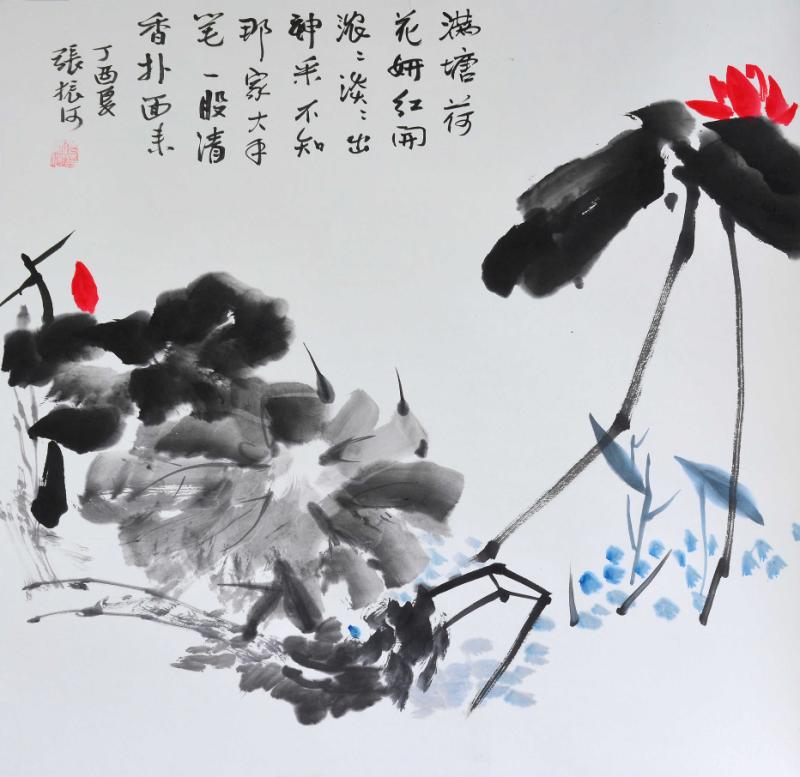 满塘荷
花妍红开
浓〻淡〻出
神采不知
那家大手
笔一股清
香扑面来
丁酉夏
張振